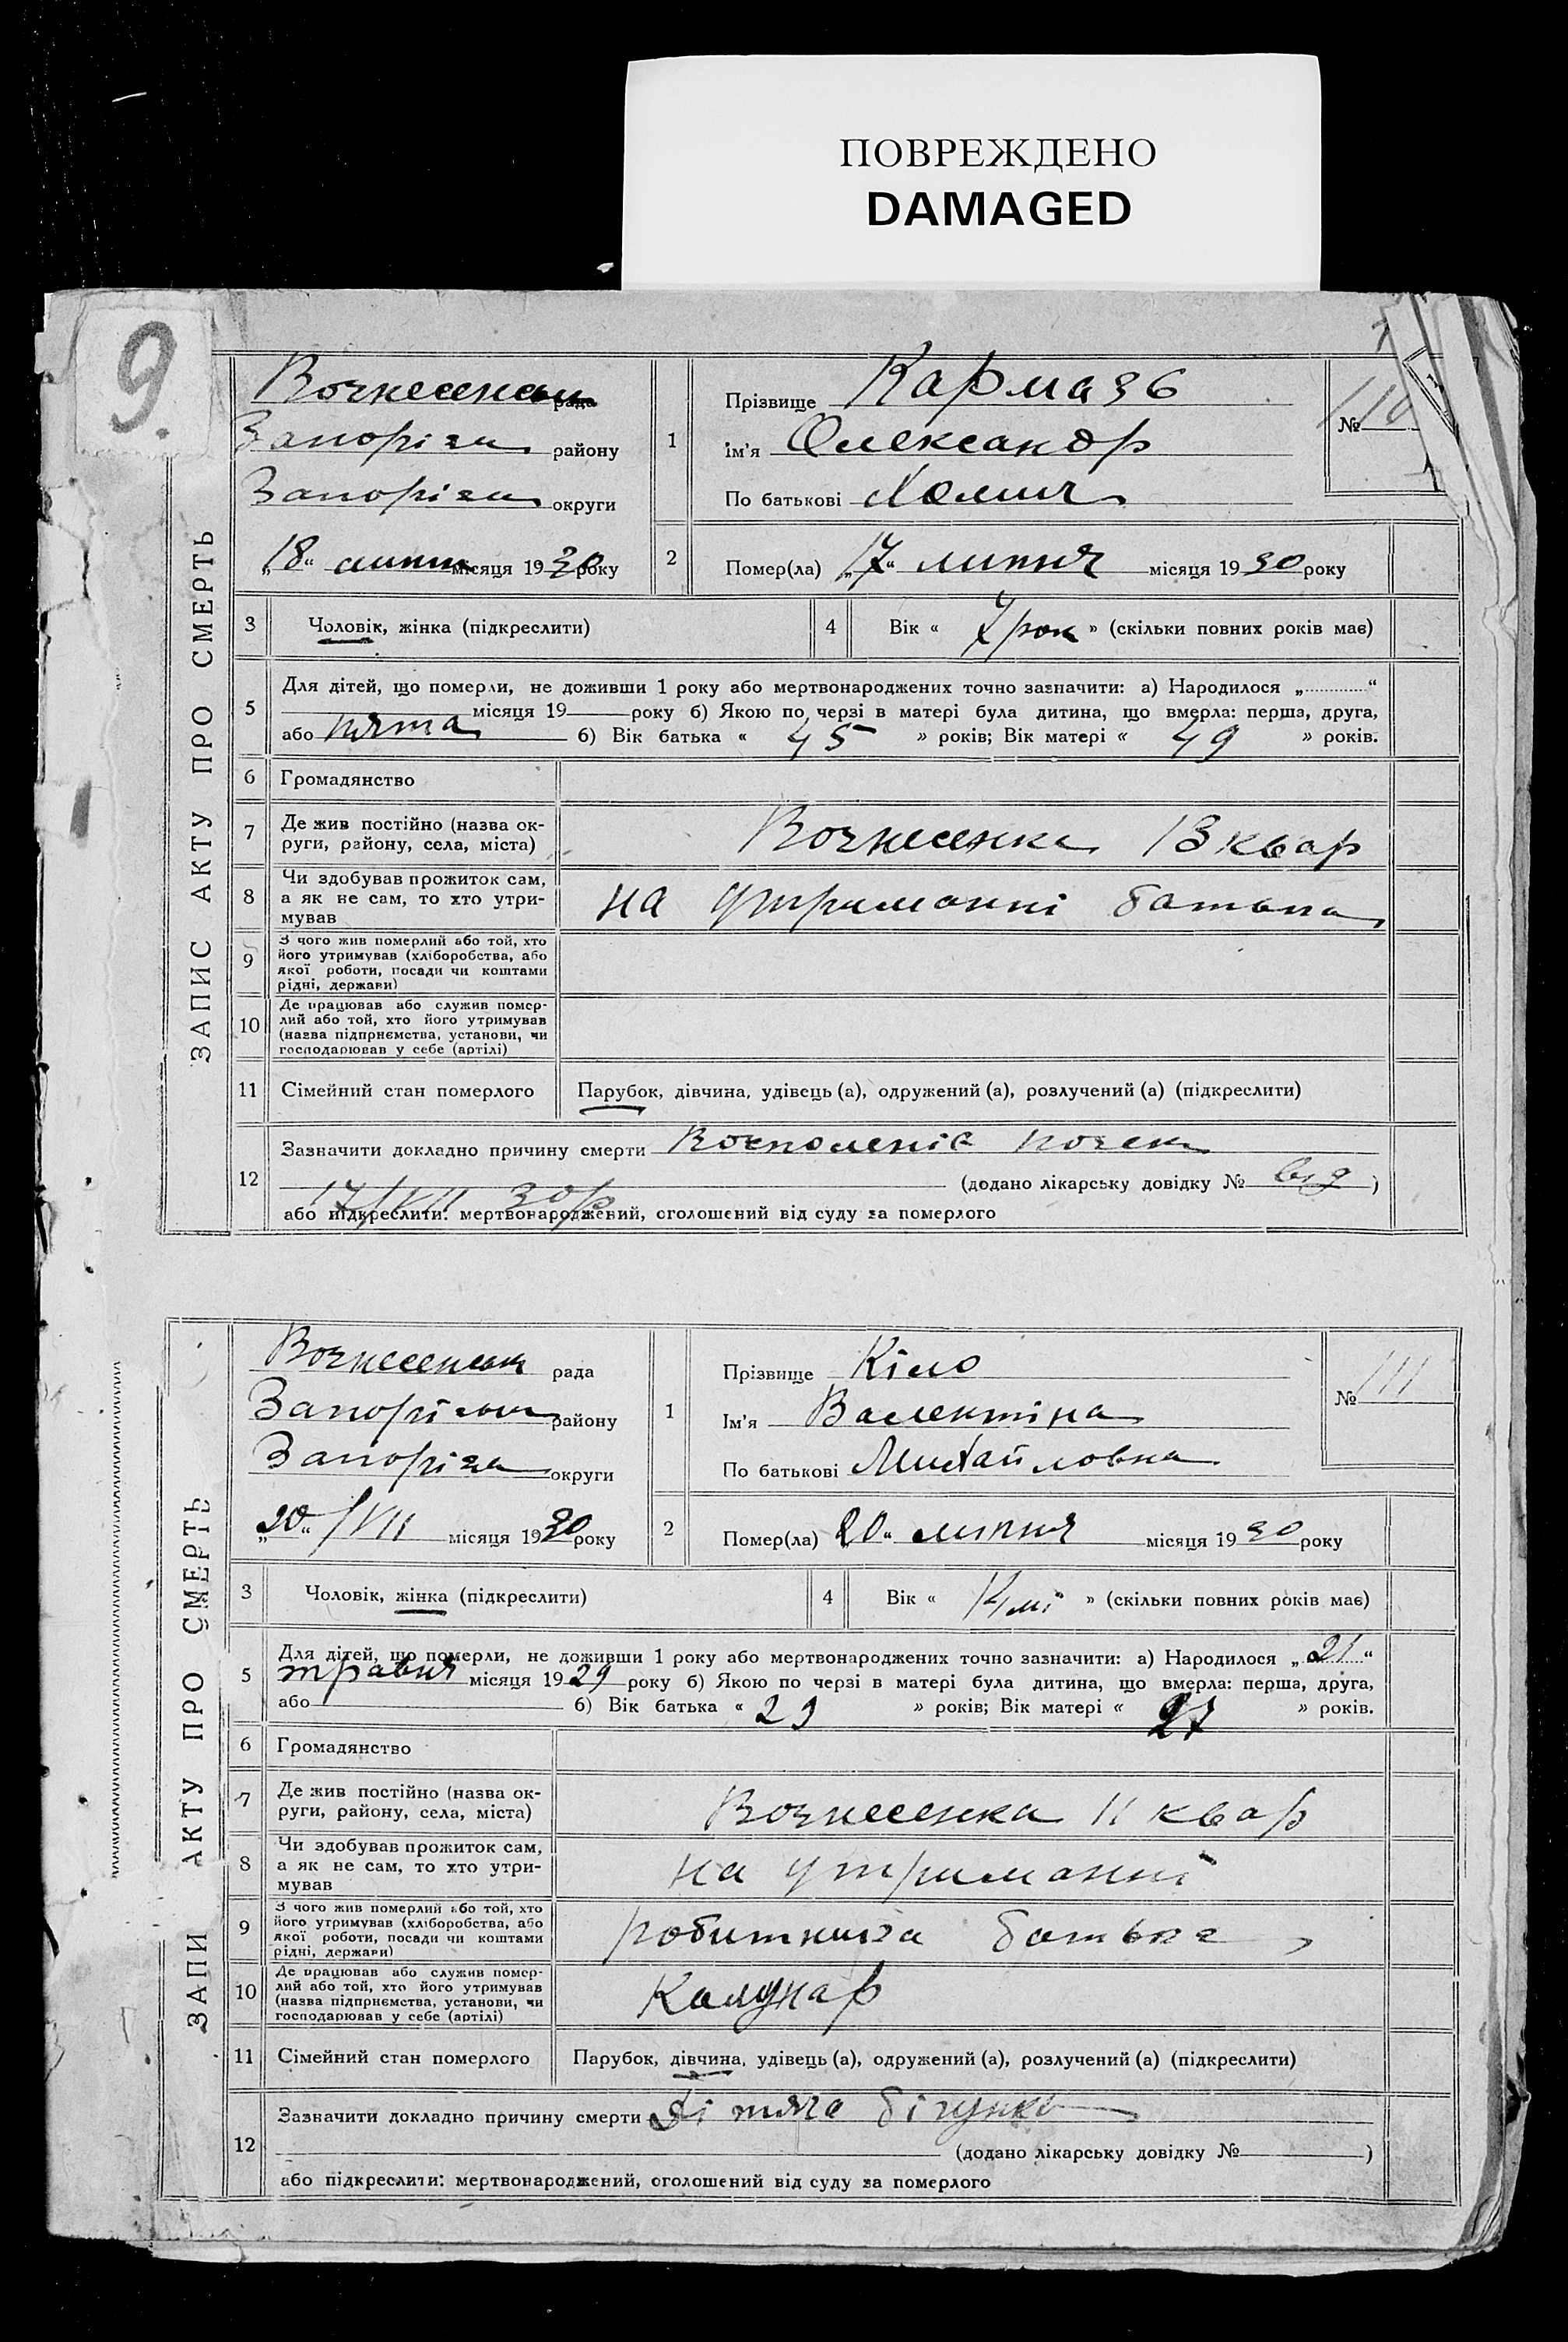 ПОВРЕЖДЕНО
DAMAGED
9.
ЗАПИС АКТУ ПРО СМЕРТЬ
Вознесенськ рада
Запоріж району
Запоріж округи
„18“ липня місяця 1930 року
1
Прізвище Кармазь
Ім'я Олександр
По батькові Хомич
№ 110
2
Помер(ла) „17“ липня місяця 1930 року
3 Чоловік, жінка (підкреслити)
4 Вік « 7 рок » (скільки повних років має)
5 Для дітей, що померли, не доживши 1 року або мертвонароджених точно зазначити: а) Народилося „ “
місяця 19 року б) Якою по черзі в матері була дитина, що вмерла: перша, друга,
або пята б) Вік батька « 45 » років; Вік матері « 49 » років.
6 Громадянство
7 Де жив постійно (назва ок-
руги, району, села, міста)
Вознесенка 13 квар
8 Чи здобував прожиток сам,
а як не сам, то хто утри-
мував
на утриманні батька
9 З чого жив померлий або той, хто
його утримував (хліборобства, або
якої роботи, посади чи коштами
рідні, держави)
10 Де працював або служив помер-
лий або той, хто його утримував
(назва підпрнємства, установи, чи
господарював у себе (артілі)
11 Сімейний стан померлого Парубок, дівчина, удівець (а), одружений (а), розлучений (а) (підкреслити)
12 Зазначити докладно причину смерти Восполеніє почек
(додано лікарську довідку № від )
17/VII 30 р
або підкреслити: мертвонароджений, оголошений від суду за померлого
ЗАПИ АКТУ ПРО СМЕРТЬ
Вознесенськ рада
Запоріськ району
Запоріж округи
„20“ /VII місяця 1930 року
1
Прізвище Кіло
Ім'я Валентіна
По батькові Михайловна
№ 111
2
Помер(ла) „20“ липня місяця 1930 року
3 Чоловік, жінка (підкреслити)
4 Вік « 14 мі » (скільки повних років має)
5 Для дітей, що померли, не доживши 1 року або мертвонароджених точно зазначити: а) Народилося „21“
травня місяця 1929 року б) Якою по черзі в матері була дитина, що вмерла: перша, друга,
або б) Вік батька « 29 » років; Вік матері « 27 » років.
6 Громадянство
7 Де жив постійно (назва ок-
руги, району, села, міста)
Вознесенка 11 квар
8 Чи здобував прожиток сам,
а як не сам, то хто утри-
мував
на утриманні
9 З чого жив померлий або той, хто
його утримував (хліборобства, або
якої роботи, посади чи коштами
рідні, держави)
робитника батька
10 Де працював або служив помер-
лий або той, хто його утримував
(назва підпрнємства, установи, чи
господарював у себе (артілі)
Комунар
11 Сімейний стан померлого Парубок, дівчина, удівець (а), одружений (а), розлучений (а) (підкреслити)
12 Зазначити докладно причину смерти Дітяча бігунка
(додано лікарську довідку № )
або підкреслити: мертвонароджений, оголошений від суду за померлого